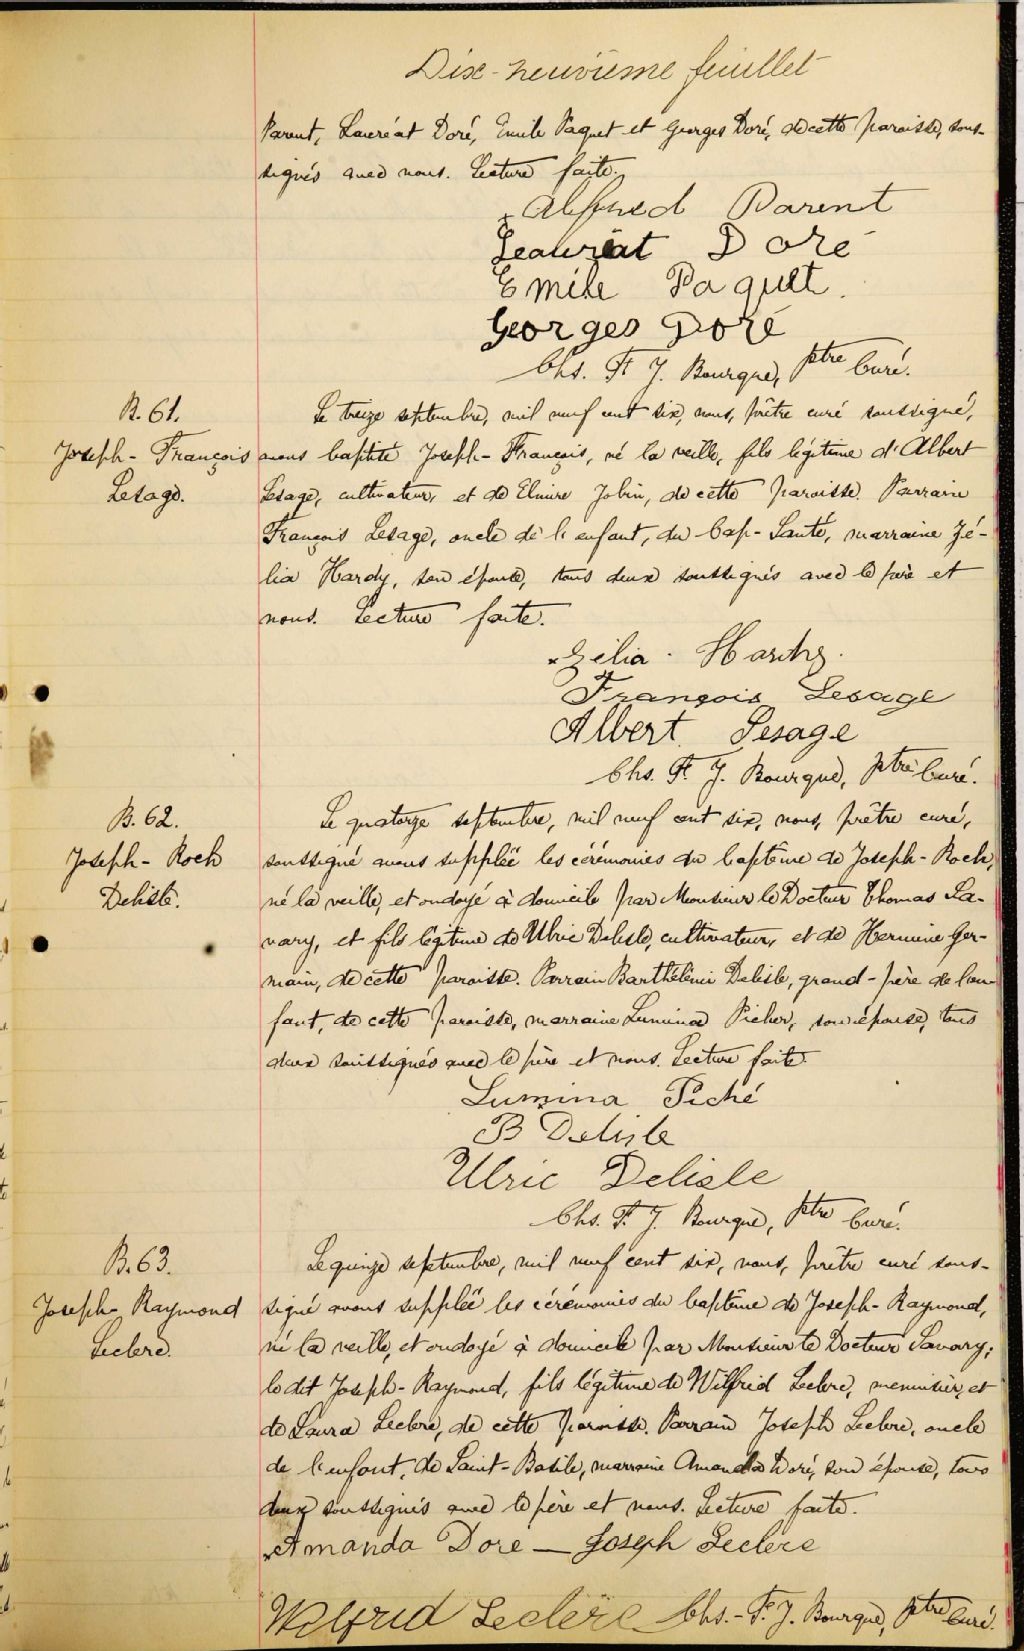 Dix-neuvième feuillet
Parent, Lauréat Doré, Emile Paquet et Georges Doré, de cette paroisse, sous-
signés avec nous. Lecture faite.
Alfred Parent
Leauréat Doré
Emile Paquet.
Georges Doré
Chs. F. J. Bourque, ptre Curé.
B. 61.
Joseph-François
Lesage.
Le treize septembre, mil neuf cent six, nous, prêtre curé soussigné,
avons baptisé Joseph-François, né la veille, fils légitime d'Albert
Lesage, cultivateur, et de Elmire Jobin, de cette paroisse. Parrain
François Lesage, oncle de l'enfant, du Cap-Santé, marraine Zé-
lia Hardy, son épouse, tous deux soussignés avec le père et
nous. Lecture faite.
Zélia Hardy.
François Lesage
Albert Lesage
Chs. F. J. Bourque, ptre Curé.
B. 62.
Joseph-Roch
Delisle.
Le quatorze septembre, mil neuf cent six, nous, prêtre curé,
soussigné avons suppléé les cérémonies du baptême de Joseph-Roch,
né la veille, et ondoyé à domicile par Monsieur le Docteur Thomas Sa-
vary, et fils légitime de Ulric Delisle, cultivateur, et de Hermine Ger-
main, de cette paroisse. Parrain Barthélémi Delisle, grand-père de l'en-
fant, de cette paroisse, marraine Lumina Picher, son épouse, tous
deux soussignés avec le père et nous. Lecture faite.
Lumina Piché
B Delisle
Ulric Delisle
Chs. F. J. Bourque, ptre Curé.
B. 63.
Joseph-Raymond
Leclerc.
Le quinze septembre, mil neuf cent six, nous, prêtre curé sous-
signé avons suppléé les cérémonies du baptême de Joseph-Raymond,
né la veille, et ondoyé à domicile par Monsieur le Docteur Savary;
le dit Joseph-Raymond, fils légitime de Wilfrid Leclerc, menuisier, et
de Laura Leclerc, de cette paroisse. Parrain Joseph Leclerc, oncle
de l'enfant, de Saint-Basile, marraine Amanda Doré, son épouse, tous
deux soussignés avec le père et nous. Lecture faite.
Amanda Dore — Joseph Leclerc
Wilfrid Leclerc Chs.-F. J. Bourque, ptre Curé.